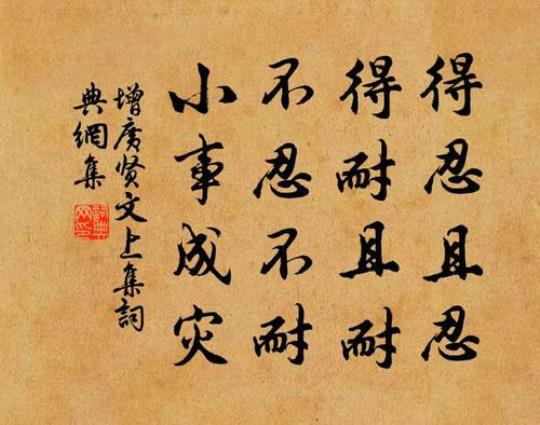 得忍且忍
得耐且耐
不忍不耐
小事成灾
增广贤文上集詞
典網集
詞典網印